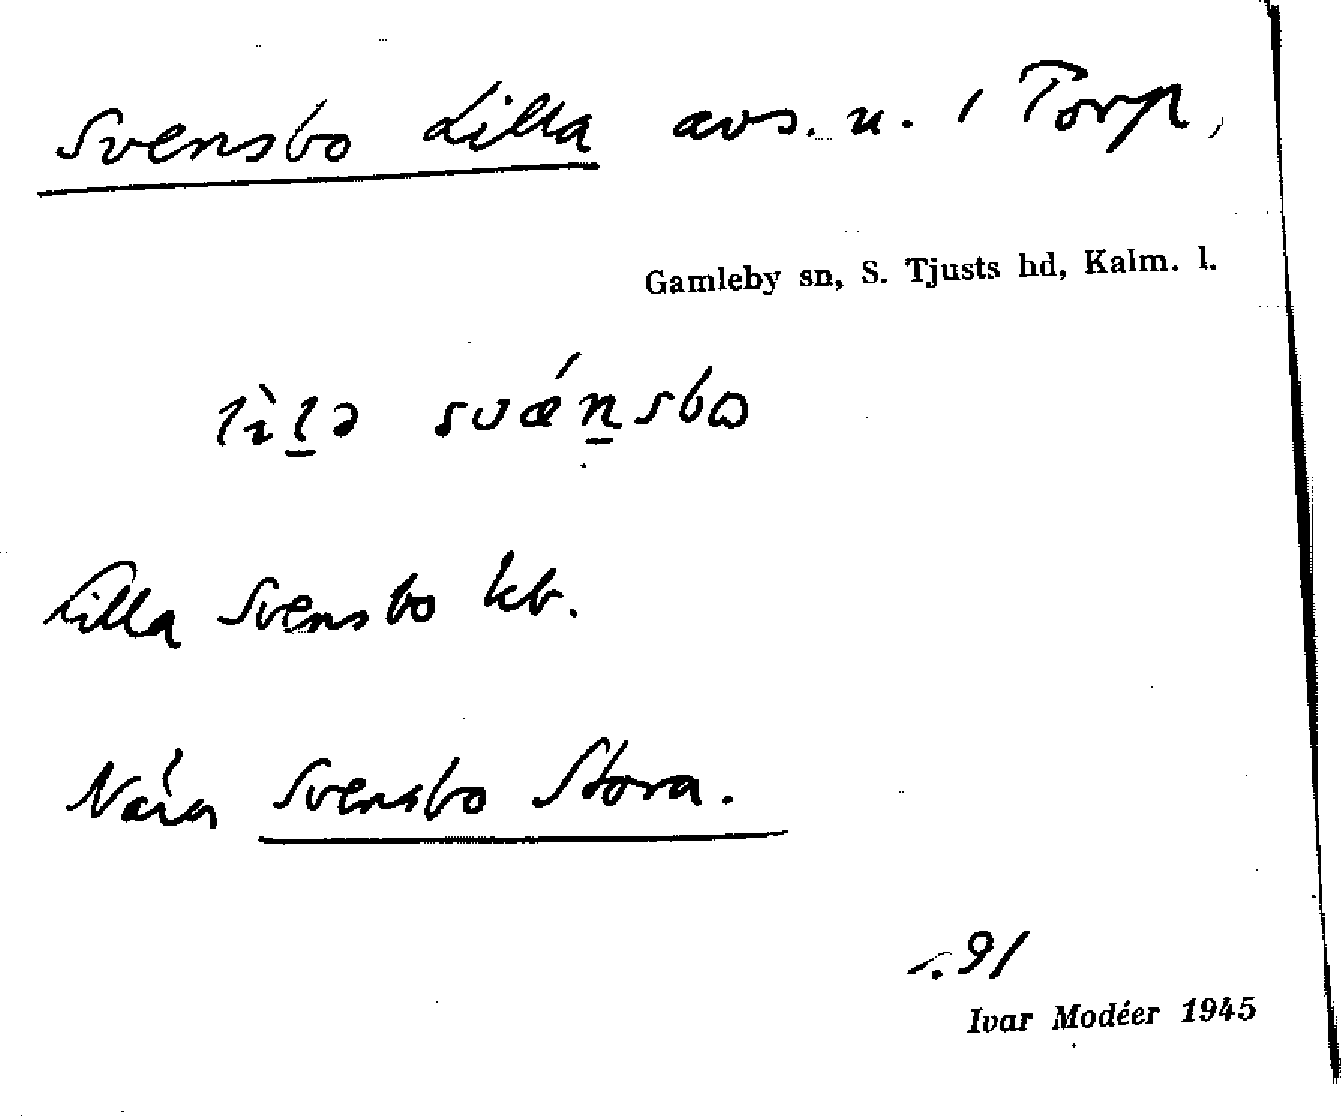 Svensbo Lilla avs. u. i Torp,
Gamleby sn, S. Tjusts hd, Kalm. l.
lìl̠ə svǽn̠sbω
Lilla Svensbo kb.
Nära Svensbo Stora.
s. 91
Ivar Modéer 1945